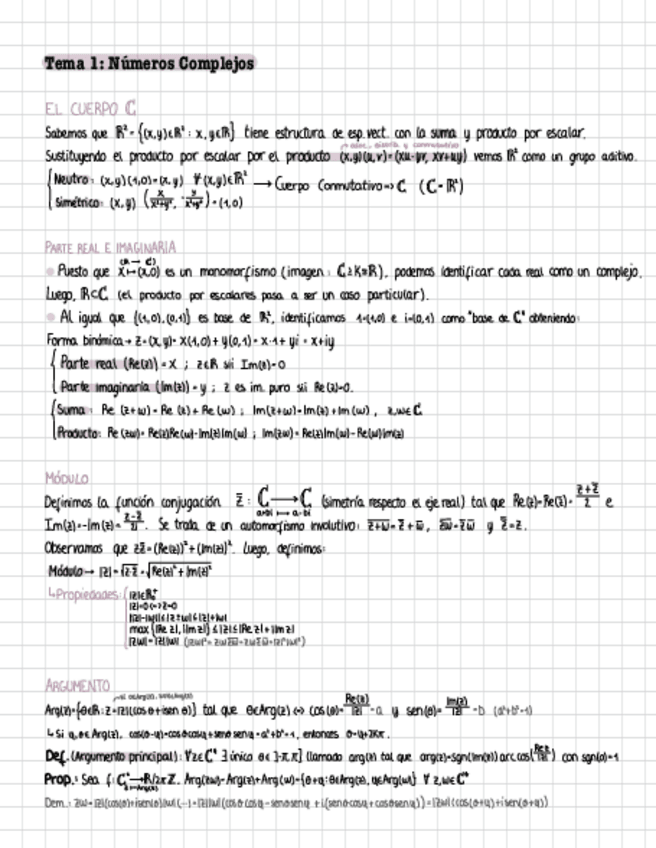 Tema 1: Números Complejos
EL CUERPO ℂ
Sabemos que ℝ² = {(x,y)∈ℝ² : x,y∈ℝ} tiene estructura de esp. vect. con la suma y producto por escalar.
Sustituyendo el producto por escalar por el producto (x,y)(u,v)=(xu-yv, xv+uy) vemos ℝ² como un grupo aditivo.
Neutro: (x,y)(1,0)=(x,y) ∀(x,y)∈ℝ² → Cuerpo Conmutativo => ℂ (ℂ=ℝ²)
Simétrico: (x,y) (x/x²+y², -y/x²+y²) = (1,0)
PARTE REAL E IMAGINARIA
(ℝ → ℂ)
Puesto que x↦(x,0) es un monomorfismo (imagen: ℂ≥K≅ℝ), podemos identificar cada real como un complejo.
Luego, ℝ⊂ℂ (el producto por escalares pasa a ser un caso particular).
Al igual que {(1,0),(0,1)} es base de ℝ², identificamos 1=(1,0) e i=(0,1) como "base de ℂ" obteniendo:
Forma binómica → z=(x,y)= x(1,0)+y(0,1)= x·1+yi = x+iy
Parte real (Re(z)) = x ; z∈ℝ sii Im(z)=0
Parte imaginaria (Im(z)) = y ; z es im. puro sii Re(z)=0.
Suma: Re (z+w) = Re (z) + Re (w) ; Im(z+w)=Im(z)+Im(w) , z,w∈ℂ
Producto: Re (zw)= Re(z)Re(w)-Im(z)Im(w) ; Im(zw)= Re(z)Im(w)-Re(w)Im(z)
MÓDULO
Definimos la función conjugación z̄ : ℂ → ℂ (simetría respecto el eje real) tal que Re(z)=Re(z̄)= (z+z̄)/2 e
a+bi ↦ a-bi
Im(z)=-Im(z̄)= (z-z̄)/2i. Se trata de un automorfismo involutivo: \overline{z+w}=z̄+w̄, \overline{zw}=z̄w̄ y z̿=z.
Observamos que zz̄=(Re(z))²+(Im(z))². Luego, definimos:
Módulo → |z|=√(z·z̄) = √(Re(z)²+Im(z)²)
↳Propiedades:
|z|∈ℝ₀⁺
|z|=0 <=> z=0
||z|-|w||≤|z±w|≤|z|+|w|
max {|Re z|,|Im z|} ≤|z|≤|Re z|+|Im z|
|zw|=|z||w|
ARGUMENTO
Arg(z)={θ∈ℝ : z=|z|(cos θ+isen θ)} tal que θ∈Arg(z) <=> cos(θ)= Re(z)/|z| =a y sen(θ)= Im(z)/|z| =b (a²+b²=1)
↳ Si φ,θ∈Arg(z), cos(θ-φ)=cosθcosφ+senθ senφ=a²+b²=1, entonces θ=φ+2Kπ.
Def. (Argumento principal): ∀z∈ℂ* ∃ único θ∈]-π,π] llamado arg(z) tal que arg(z)=sgn(Im(z)) arc cos(Re z/|z|) con sgn(0)=1
Prop.: Sea f: ℂ*→ℝ/2πℤ. Arg(zw)=Arg(z)+Arg(w)={θ+φ:θ∈Arg(z), φ∈Arg(w)} ∀ z,w∈ℂ*
z↦Arg(z)
Dem.: zw=|z|(cos(θ)+isen(θ))|w|(...)=|z||w|(cosθ cosφ-senθsenφ +i(senθcosφ+cosθsenφ))=|zw|(cos(θ+φ)+isen(θ+φ))